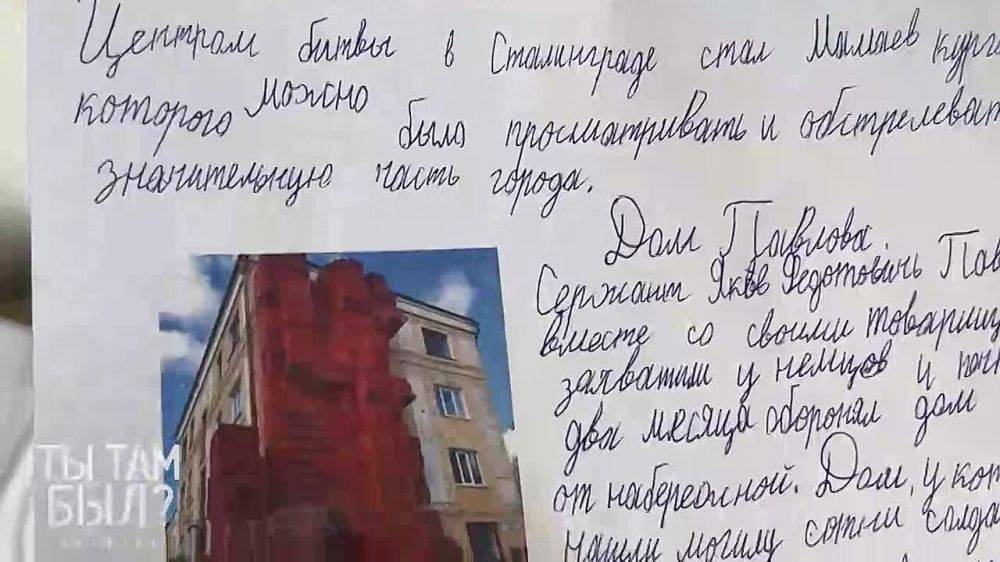 Центром битвы в Сталинграде стал Мамаев кург
которого можно было просматривать и обстрелеват
значительную часть города.
Дом Павлова.
Сержант Яков Федотович Пав
вместе со своими товарищ
захватили у немцов и поч
два месяца оборонял дом
от набережной. Дом, у кот
нашли могилу сотни солда
ТЫ ТАМ
БЫЛ?